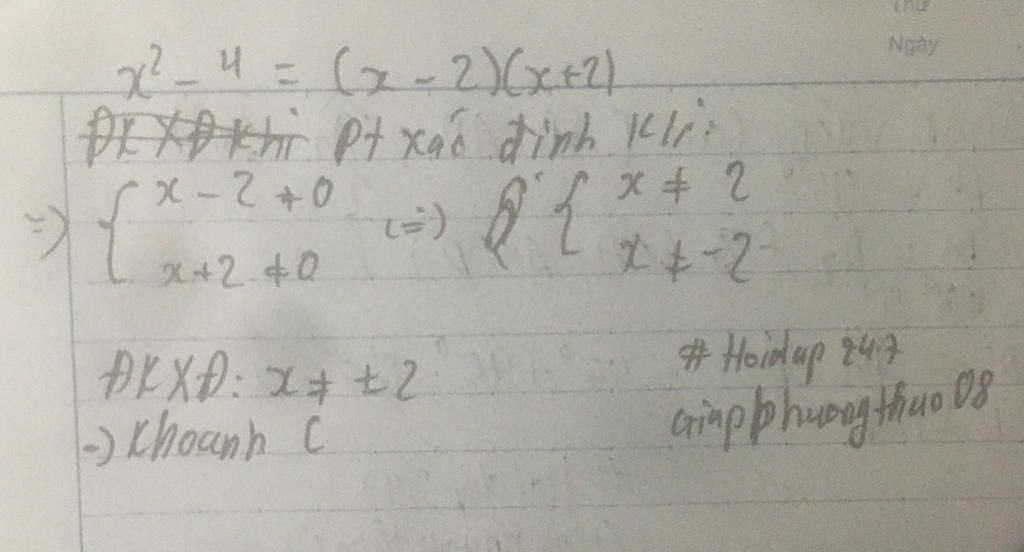 Thứ
Ngày
x² - 4 = (x - 2)(x+2)
ĐKXĐ khi pt xác định khi:
=> { x - 2 ≠ 0 (=) { x ≠ 2
x+2 ≠ 0 x ≠ -2
ĐKXĐ: x ≠ ±2
=) Khoanh C
# Hoidap 247
Giapphuongthao08